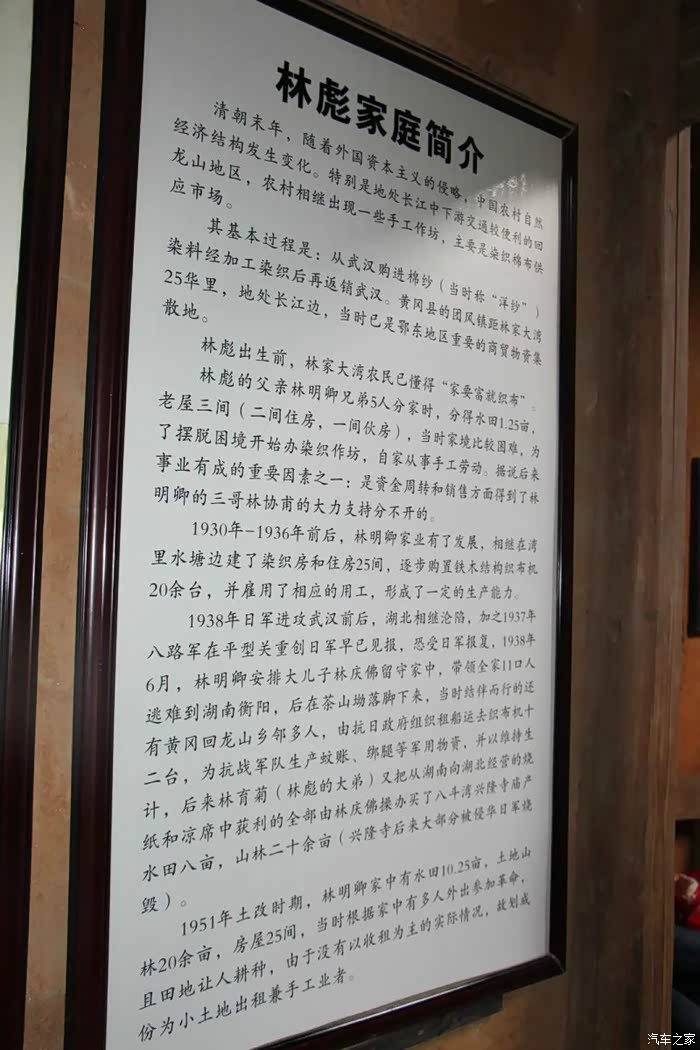 林彪家庭简介
清朝末年，随着外国资本主义的侵略，中国农村自然
经济结构发生变化。特别是地处长江中下游交通较便利的回
龙山地区，农村相继出现一些手工作坊，主要是染织棉布供
应市场。
其基本过程是：从武汉购进棉纱（当时称“洋纱”）
染料经加工染织后再返销武汉。黄冈县的团风镇距林家大湾
25华里，地处长江边，当时已是鄂东地区重要的商贸物资集
散地。
林彪出生前，林家大湾农民已懂得“家要富就织布”。
林彪的父亲林明卿兄弟5人分家时，分得水田1.25亩，
老屋三间（二间住房，一间伙房），当时家境比较困难，为
了摆脱困境开始办染织作坊，自家从事手工劳动。据说后来
事业有成的重要因素之一：是资金周转和销售方面得到了林
明卿的三哥林协甫的大力支持分不开的。
1930年-1936年前后，林明卿家业有了发展，相继在湾
里水塘边建了染织房和住房25间，逐步购置铁木结构织布机
20余台，并雇用了相应的用工，形成了一定的生产能力。
1938年日军进攻武汉前后，湖北相继沦陷，加之1937年
八路军在平型关重创日军早已见报，恐受日军报复，1938年
6月，林明卿安排大儿子林庆佛留守家中，带领全家11口人
逃难到湖南衡阳，后在茶山坳落脚下来，当时结伴而行的还
有黄冈回龙山乡邻多人，由抗日政府组织租船运去织布机十
二台，为抗战军队生产蚊账、绑腿等军用物资，并以维持生
计，后来林育菊（林彪的大弟）又把从湖南向湖北经营的烧
纸和凉席中获利的全部由林庆佛操办买了八斗湾兴隆寺庙产
水田八亩，山林二十余亩（兴隆寺后来大部分被侵华日军烧
毁）。
1951年土改时期，林明卿家中有水田10.25亩，土地山
林20余亩，房屋25间，当时根据家中有多人外出参加革命，
且田地让人耕种，由于没有以收租为主的实际情况，故划成
份为小土地出租兼手工业者。
汽车之家